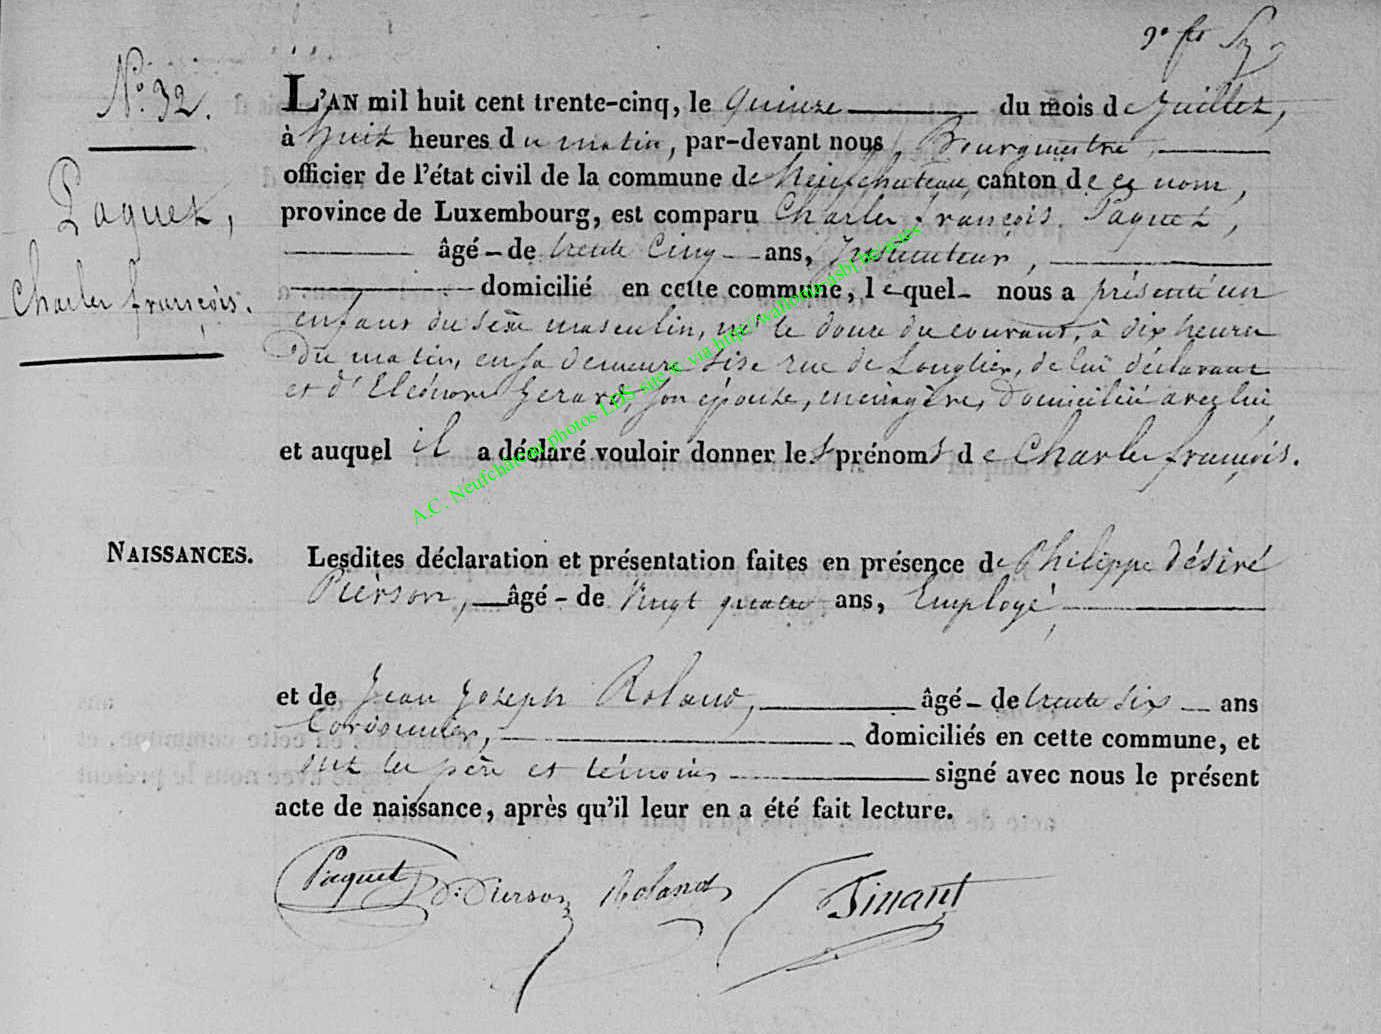 N.° 32.
Paquet,
Charles françois.
L'AN mil huit cent trente-cinq, le quinze du mois de Juillet,
à huit heures du matin, par-devant nous Bourgmestre,
officier de l'état civil de la commune de Neufchateau, canton de ce nom,
province de Luxembourg, est comparu Charles françois Paquet,
âgé de trente Cinq ans, Instituteur,
domicilié en cette commune, lequel nous a présenté un
enfant du sexe masculin, né le douze du courant, à dix heures
du matin, en sa demeure sise rue de Longlier, de lui déclarant
et d'Eléonore Gerard, son épouse, ménagère, domiciliée avec lui,
et auquel il a déclaré vouloir donner les prénoms de Charles françois.
NAISSANCES.
Lesdites déclaration et présentation faites en présence de Philippe Désiré
Pierson, âgé de vingt quatre ans, Employé,
et de Jean Joseph Roland, âgé de trente six ans
Cordonnier, domiciliés en cette commune, et
ont les père et témoins signé avec nous le présent
acte de naissance, après qu'il leur en a été fait lecture.
Paquet D. Pierson Roland Tinant
A.C. Neufchâteau photos LDS site & via http://wallonia.asbl.be/actes